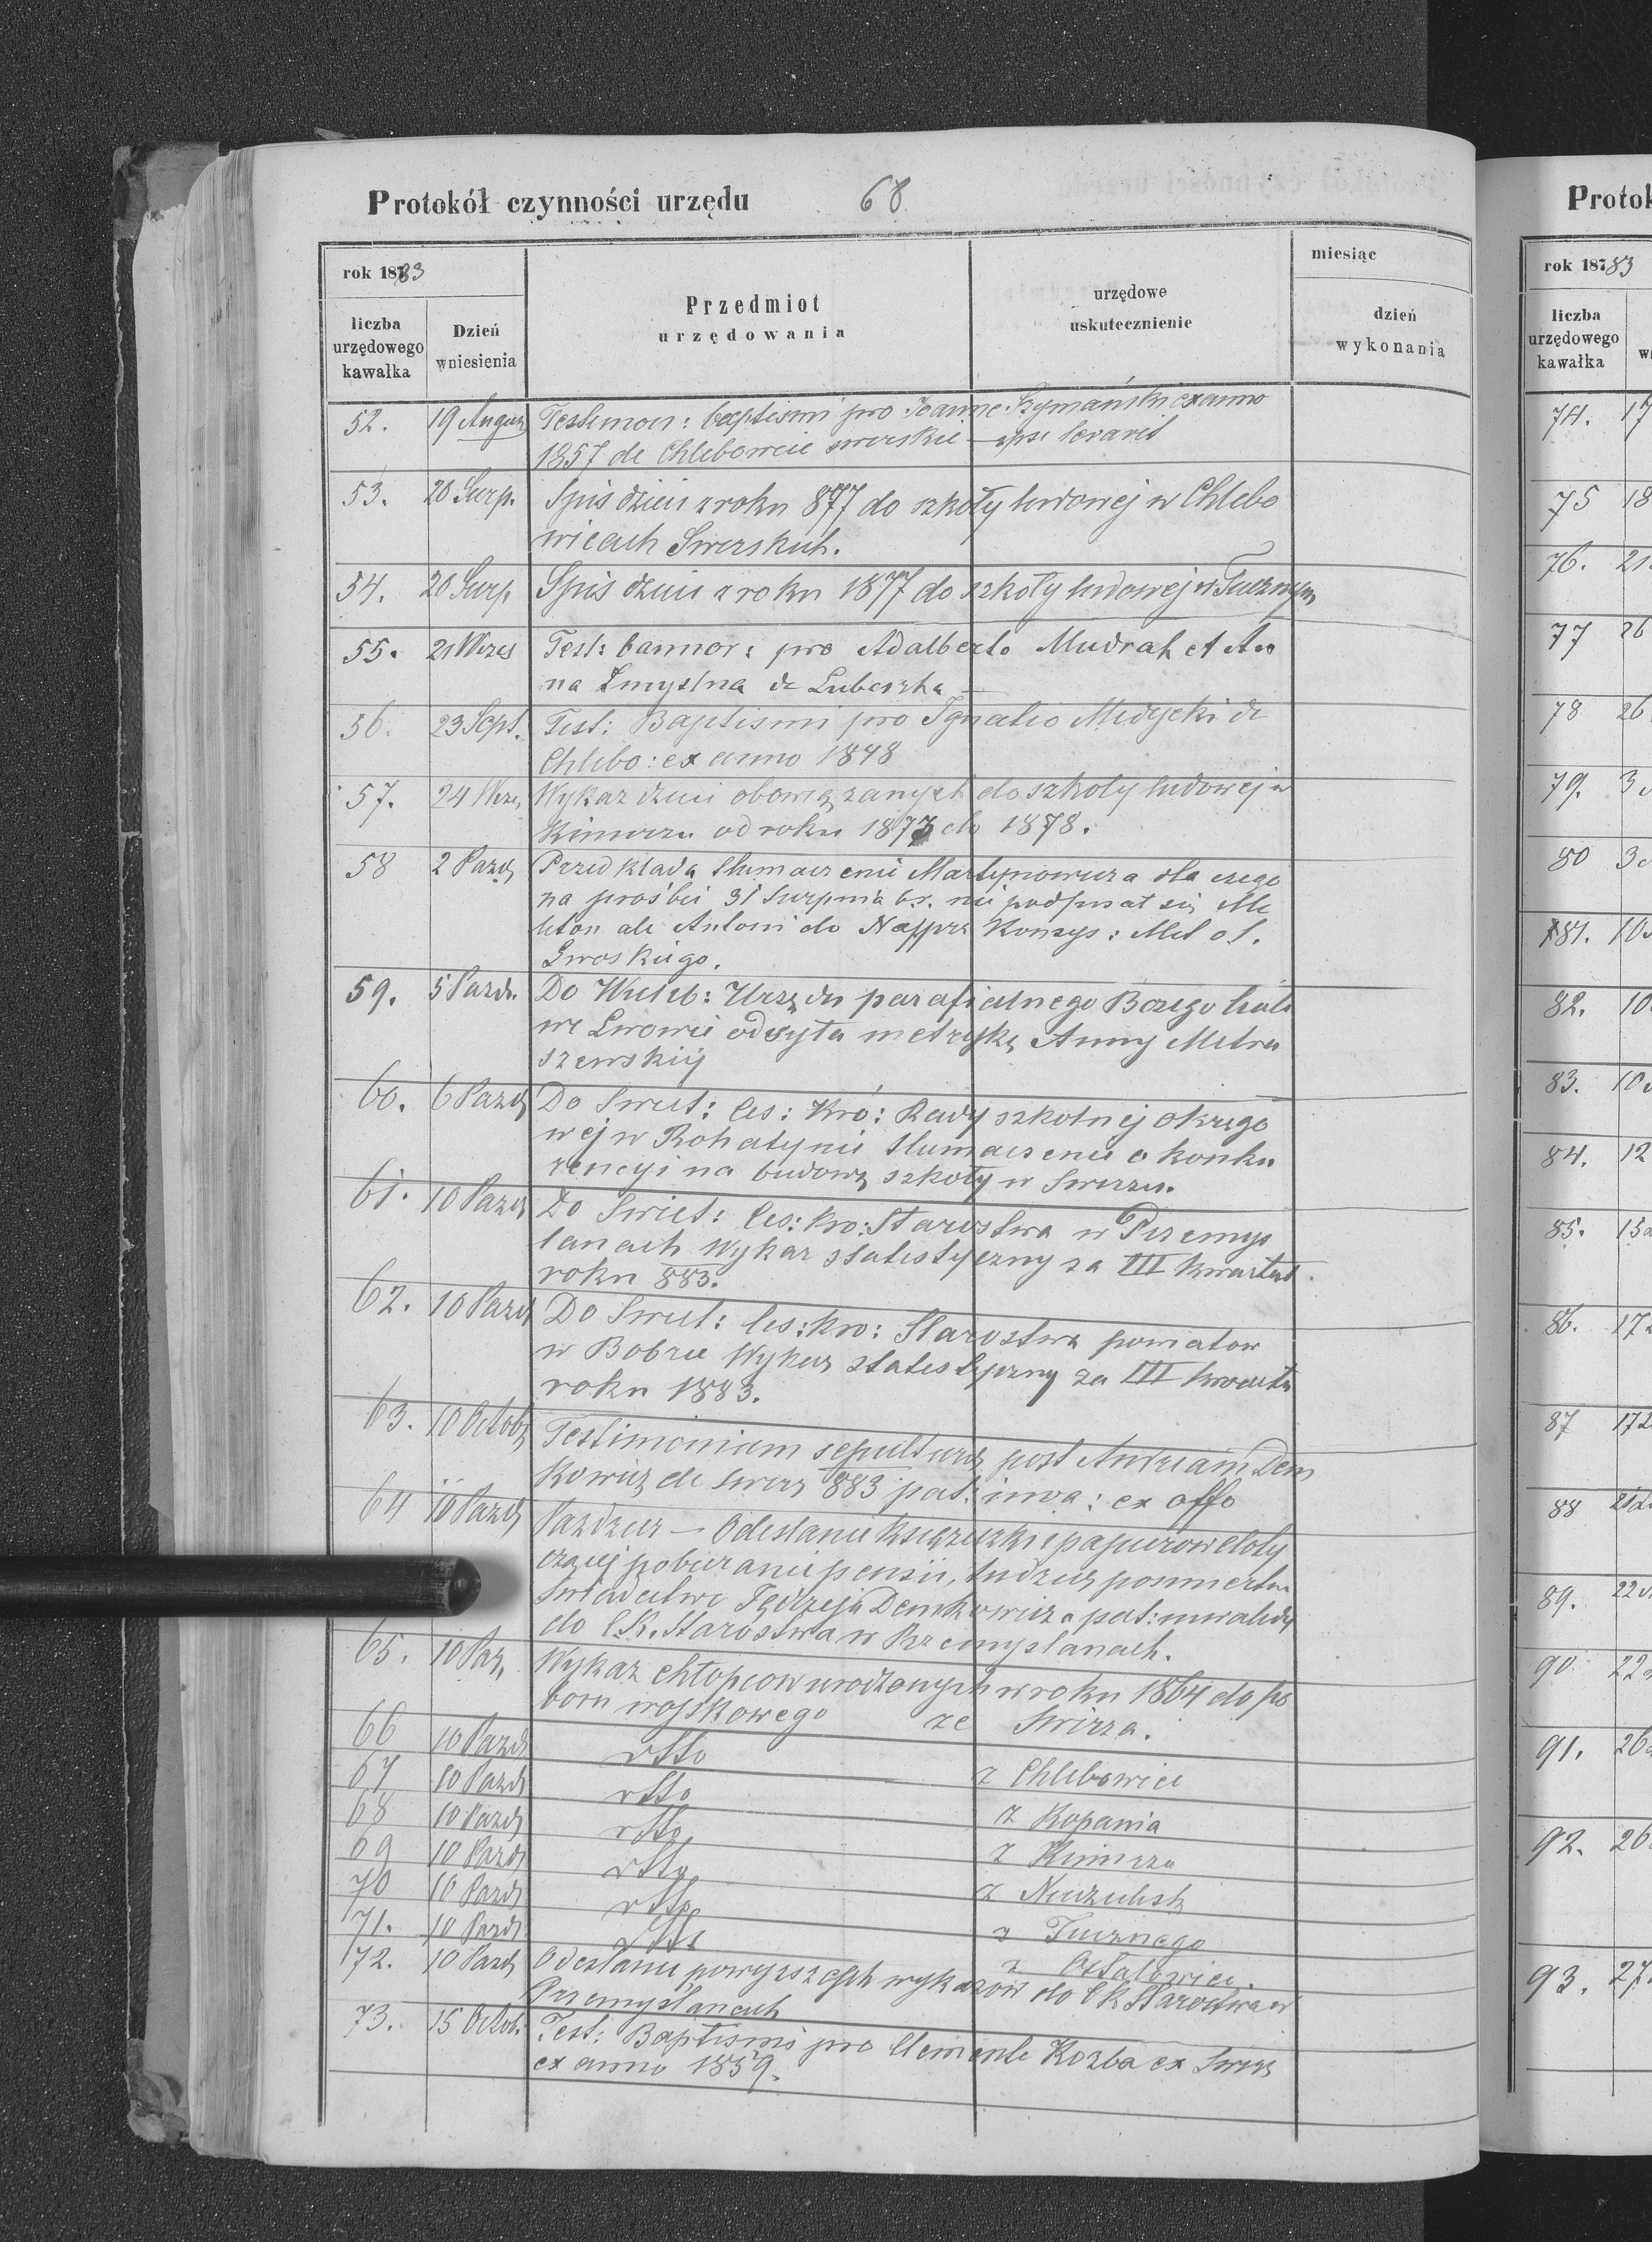 Protokół czynności urzędu 68
rok 1883
liczba urzędowego kawałka
Dzień wniesienia
Przedmiot urzędowania
urzędowe uskutecznienie
miesiąc
dzień wykonania
52. 19 August Testimon: baptismi pro Joanne Szymański ex anno
1857 de Chlebowice swirskie
53. 20 Sierp. Spis dzieci z roku 877 do szkoły ludowej w Chlebo
wicach Swirskich.
54. 20 Sierp. Spis dzieci z roku 1877 do szkoły ludowej w Tucznym
55. 21 Wrzes Test: bannor: pro Adalberto Mudrak et An
na Zmyslna de Lubeszka
56. 23 Sept. Test: Baptismi pro Ignatio Medycki de
Chlebo: ex anno 1848
57. 24 Wrze Wykaz dzieci obowiązanych do szkoły ludowej w
Kimirzu od roku 1873 do 1878.
58 2 Pazd Przedkłada tłumaczenie Martynowicza dla czego
na prośbie 31 Sierpnia b.r. nie podpisał się Me
leton ale Antoni do Najprz Konsys: Met ol.
Lwoskiego.
59. 5 Pazdr. Do Wieleb: Urzędu parafialnego Bożego Ciała
we Lwowie odsyła metrykę Anny Mitru
szewskiej
60. 6 Pazd Do Swiet: Ces: Kró: Rady szkolnej okręgo
wej w Rohatynie tłumaczenie o konku
rencyi na budowę szkoły w Swirzu.
61. 10 Pazd Do Swiet: Ces: Kro: Starostwa w Przemys
lanach Wykaz statystyczny za III kwartał
roku 883.
62. 10 Pazd Do Swiet: Ces: Kro: Starostwa powiatow
w Bobrce Wykaz statystyczny za III kwarta
roku 1883.
63. 10 Octob Testimonium sepulturae post Andream Dem
kowicz de Swirz 883 pat: inva: ex offo
64 10 Pazd Pazdzier — Odeslanie książeczki i papierow
pobierania pensii, tudzież posmiertne
Swiadectwo Jędrzeja Demkowicza pat: inwalidy
do C.K. Starostwa w Przemyslanach.
65. 10 Paz, Wykaz chłopcow urodzonych w roku 1864 do po
boru wojskowego ze Swirza.
66 10 Pazd dtto z Chlebowice
67 10 Pazd dtto z Kopania
68 10 Pazd dtto z Kimirza
69 10 Pazd dtto
70 10 Pazd dtto z Tucznego
71. 10 Pazd dtto z Ostalowice.
72. 10 Pazd Odeslanie powyższych wykazow do CK Starostwa w
Przemyslanach
73. 15 Octob. Test: Baptismi pro Clemente Kozba ex Swirz
ex anno 1859.
Protok
rok 1883
liczba urzędowego kawałka
74.
75 18
76. 21
77 26
78 26
79. 3
80 3
81. 10
82. 10
83. 10
84. 12
85. 15
86. 17
87 17
88 21
89. 22
90 22
91. 26
92. 26
93. 27